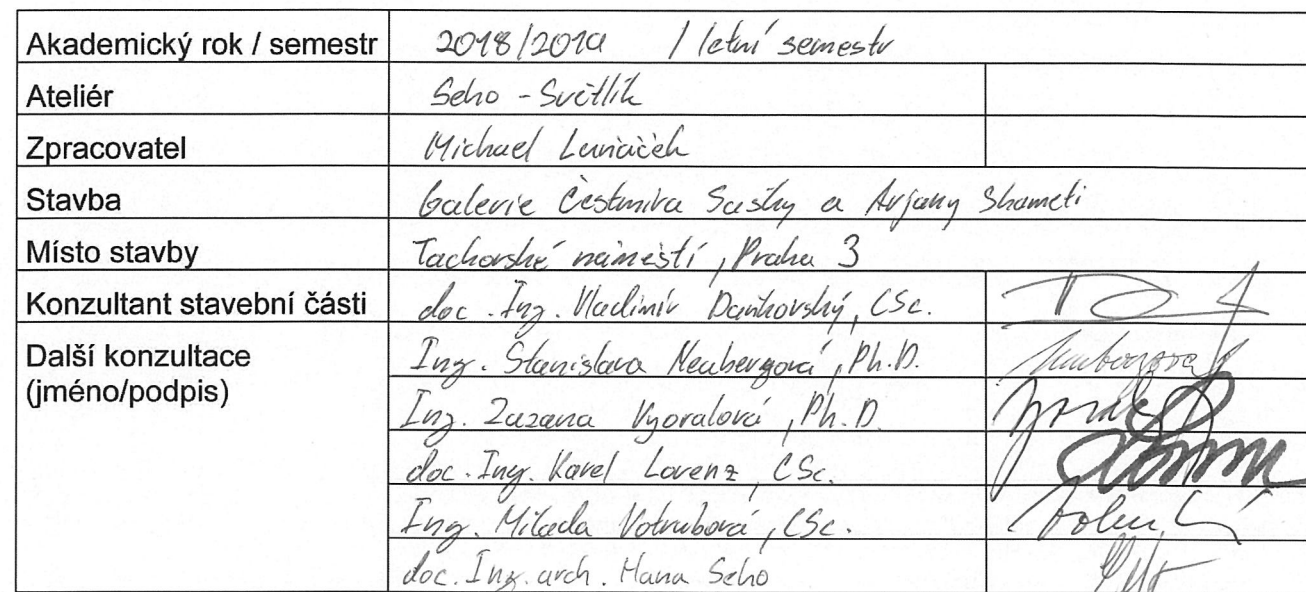 Akademický rok / semestr 2018/2019 / letní semestr
Ateliér Seho - Světlík
Zpracovatel Michael
Stavba Galerie Čestmíra Sušky a Arjany Shameti
Místo stavby Tachovské náměstí, Praha 3
Konzultant stavební části doc. Ing. Vladimír Daňkovský, CSc.
Další konzultace Ing. Stanislava Neubergová, Ph.D.
(jméno/podpis) Ing. Zuzana Vyoralová, Ph.D.
doc. Ing. Karel Lorenz, CSc.
Ing. Milada Votrubová, CSc.
doc. Ing. arch. Hana Seho